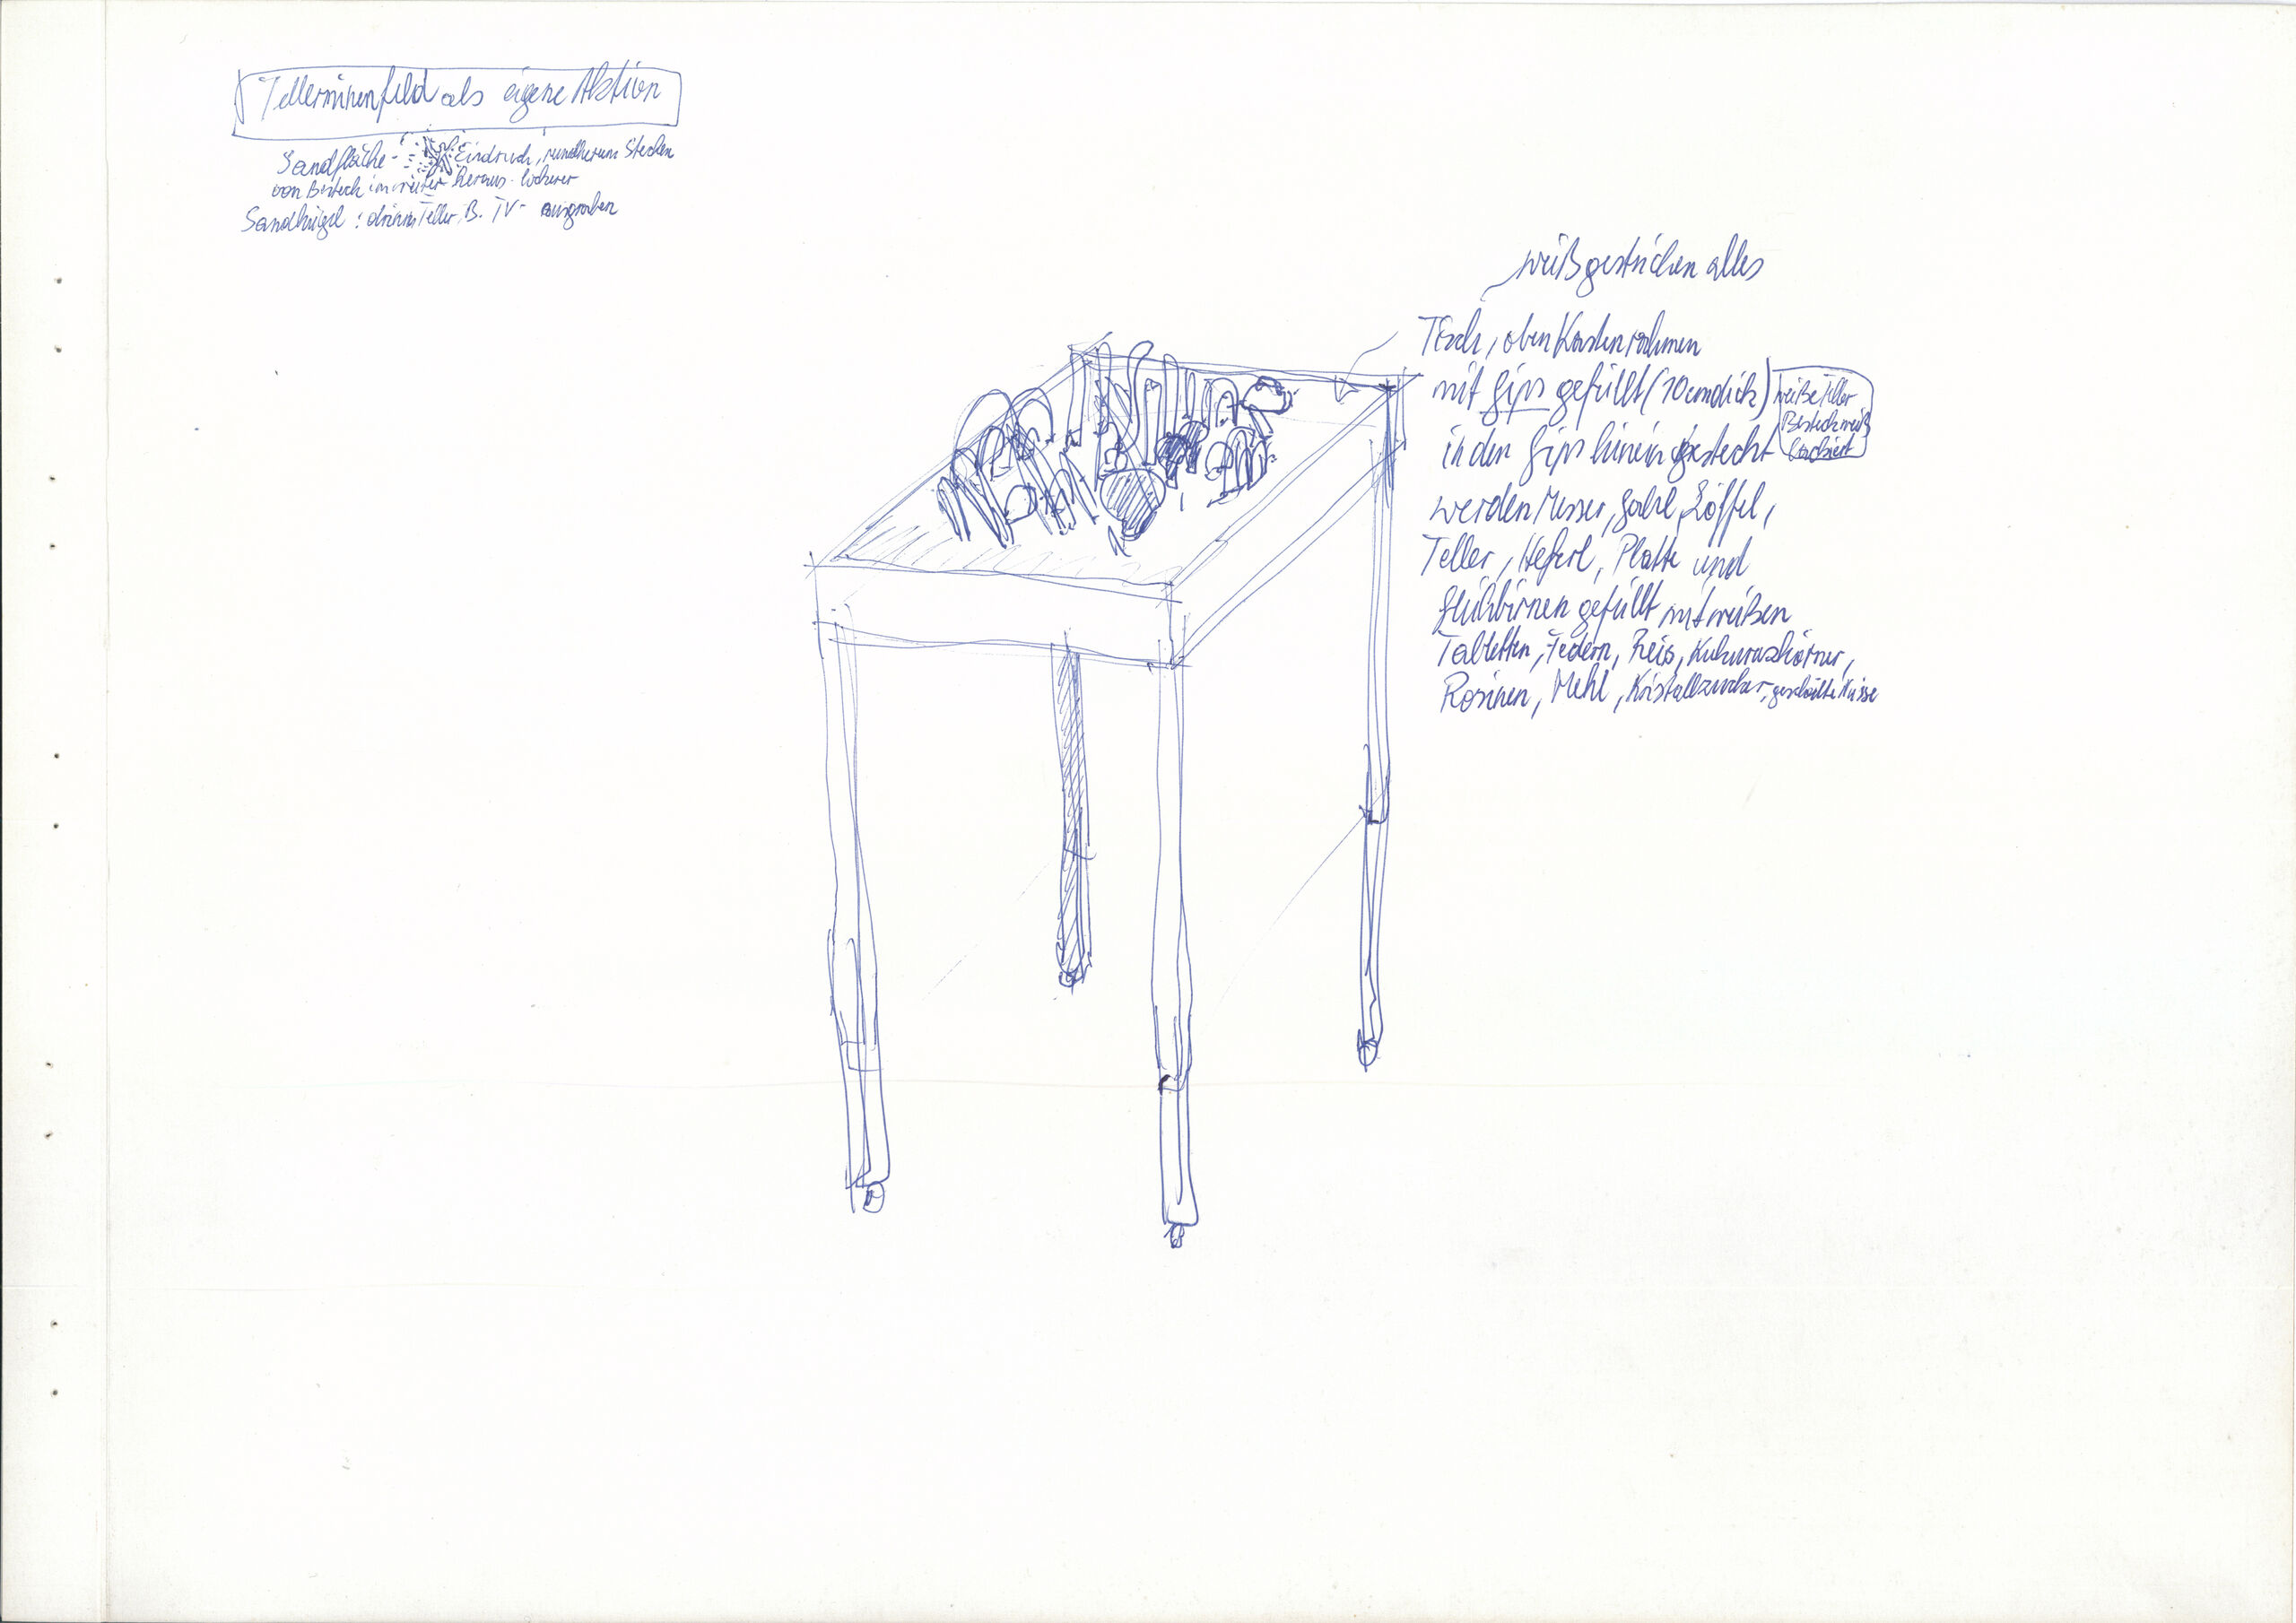 Tellerminenfeld als eigene Aktion
Sandfläche - Eindruck, rundherum Stechen
von Besteck immer weiter heraus - lockerer
Sandhügel : drinnen Teller, B. TV - ausgraben
weiß gestrichen alles
Tisch, oben Kastenrahmen
mit Gips gefüllt (10 cm dick)
in den Gips hinein gesteckt
werden Messer, Gabel, Löffel,
Teller, Heferl, Platte und
Glühbirnen gefüllt mit weißen
Tabletten, Federn, Reis, Kukuruzkörner,
Rosinen, Mehl, Kristallzucker, geschälte Nüsse
weiße Teller
Besteck weiß
lackiert